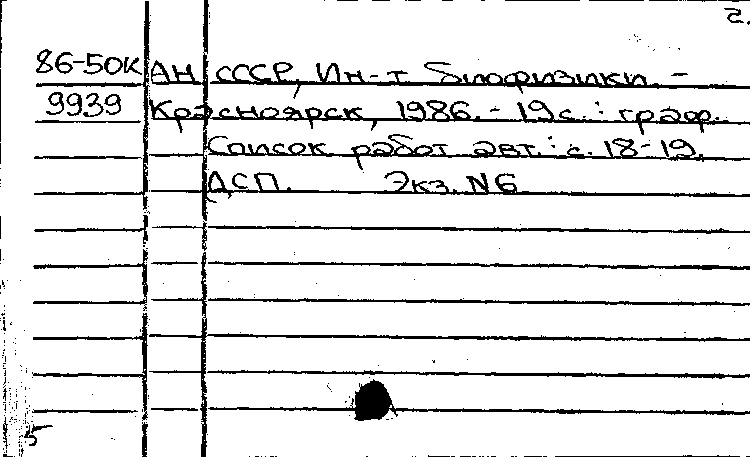 2.
86-50к АН СССР, Ин-т биофизики. -
9939 Красноярск, 1986. - 19 с. : граф.
Список работ авт.: с. 18-19.
ДСП. Экз. N6
5